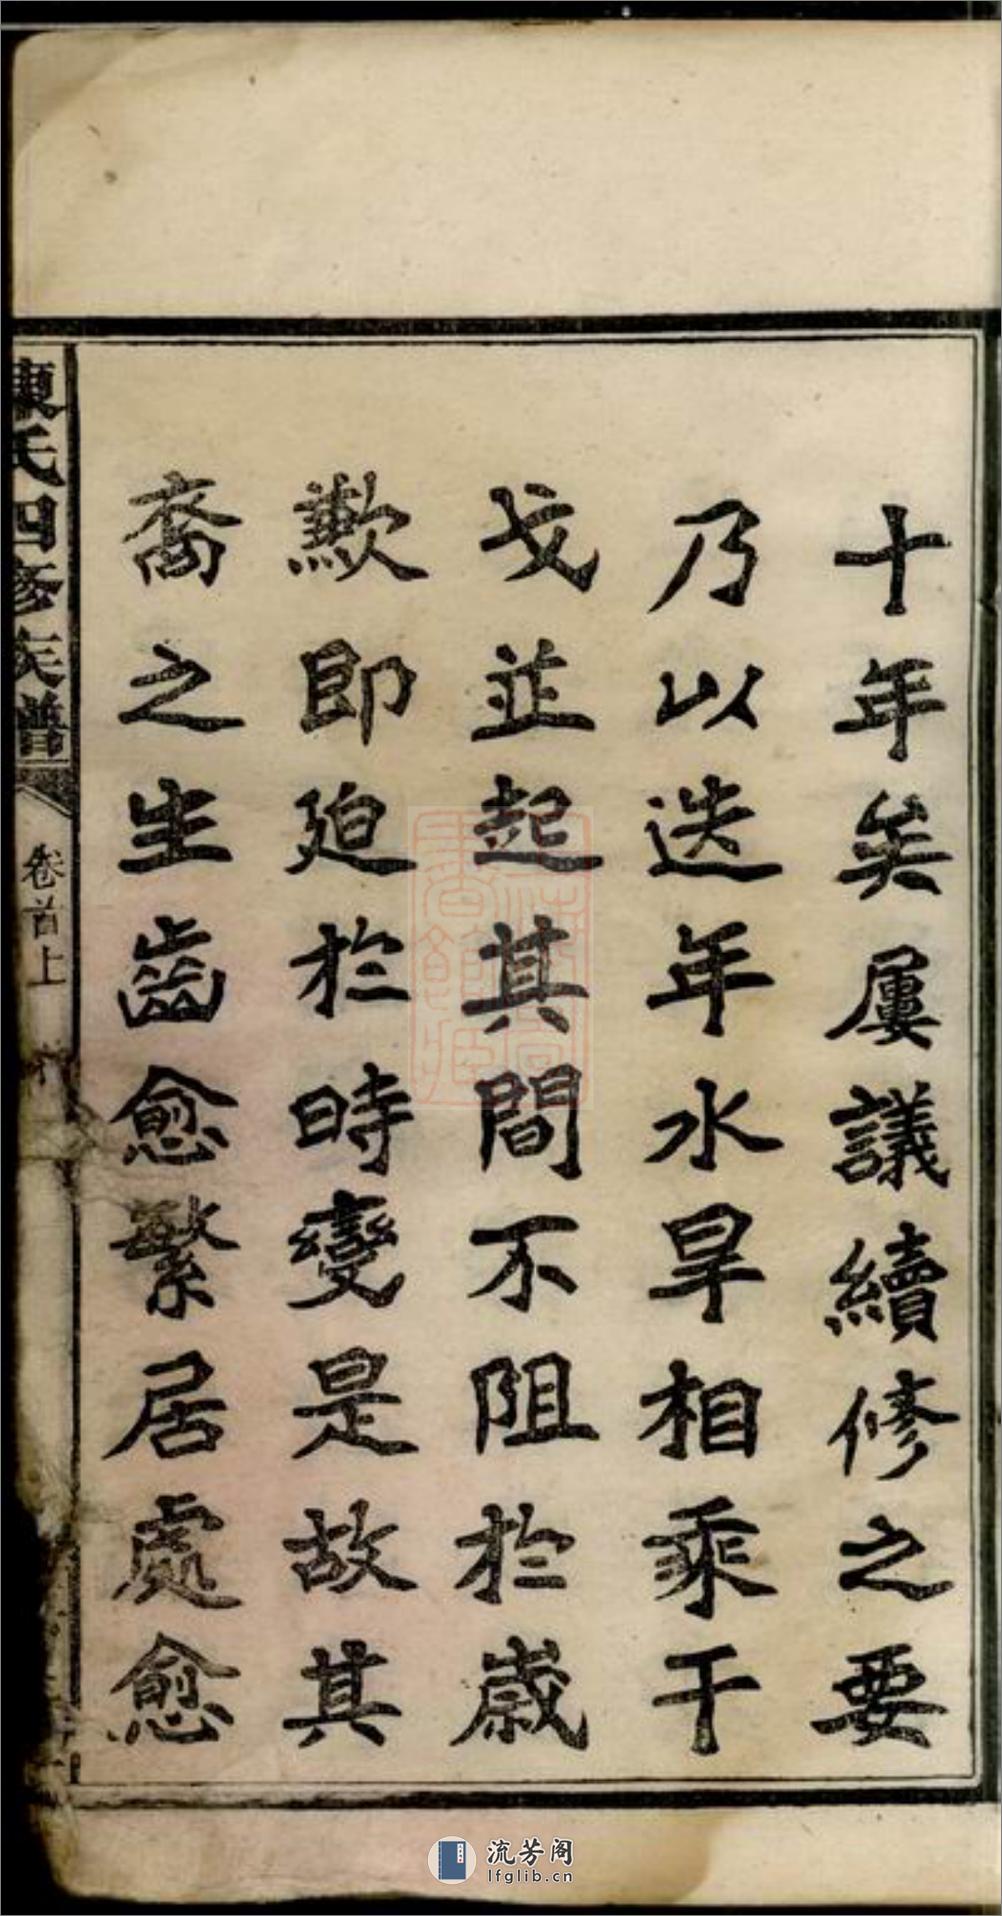 十年矣屢議續修之要
乃以迭年水旱相乘干
戈並起其間不阻於歲
歉即迫於時變是故其
裔之生齒愈繁居處愈
陳氏四修族譜
卷首上
流芳阁
lfglib.cn